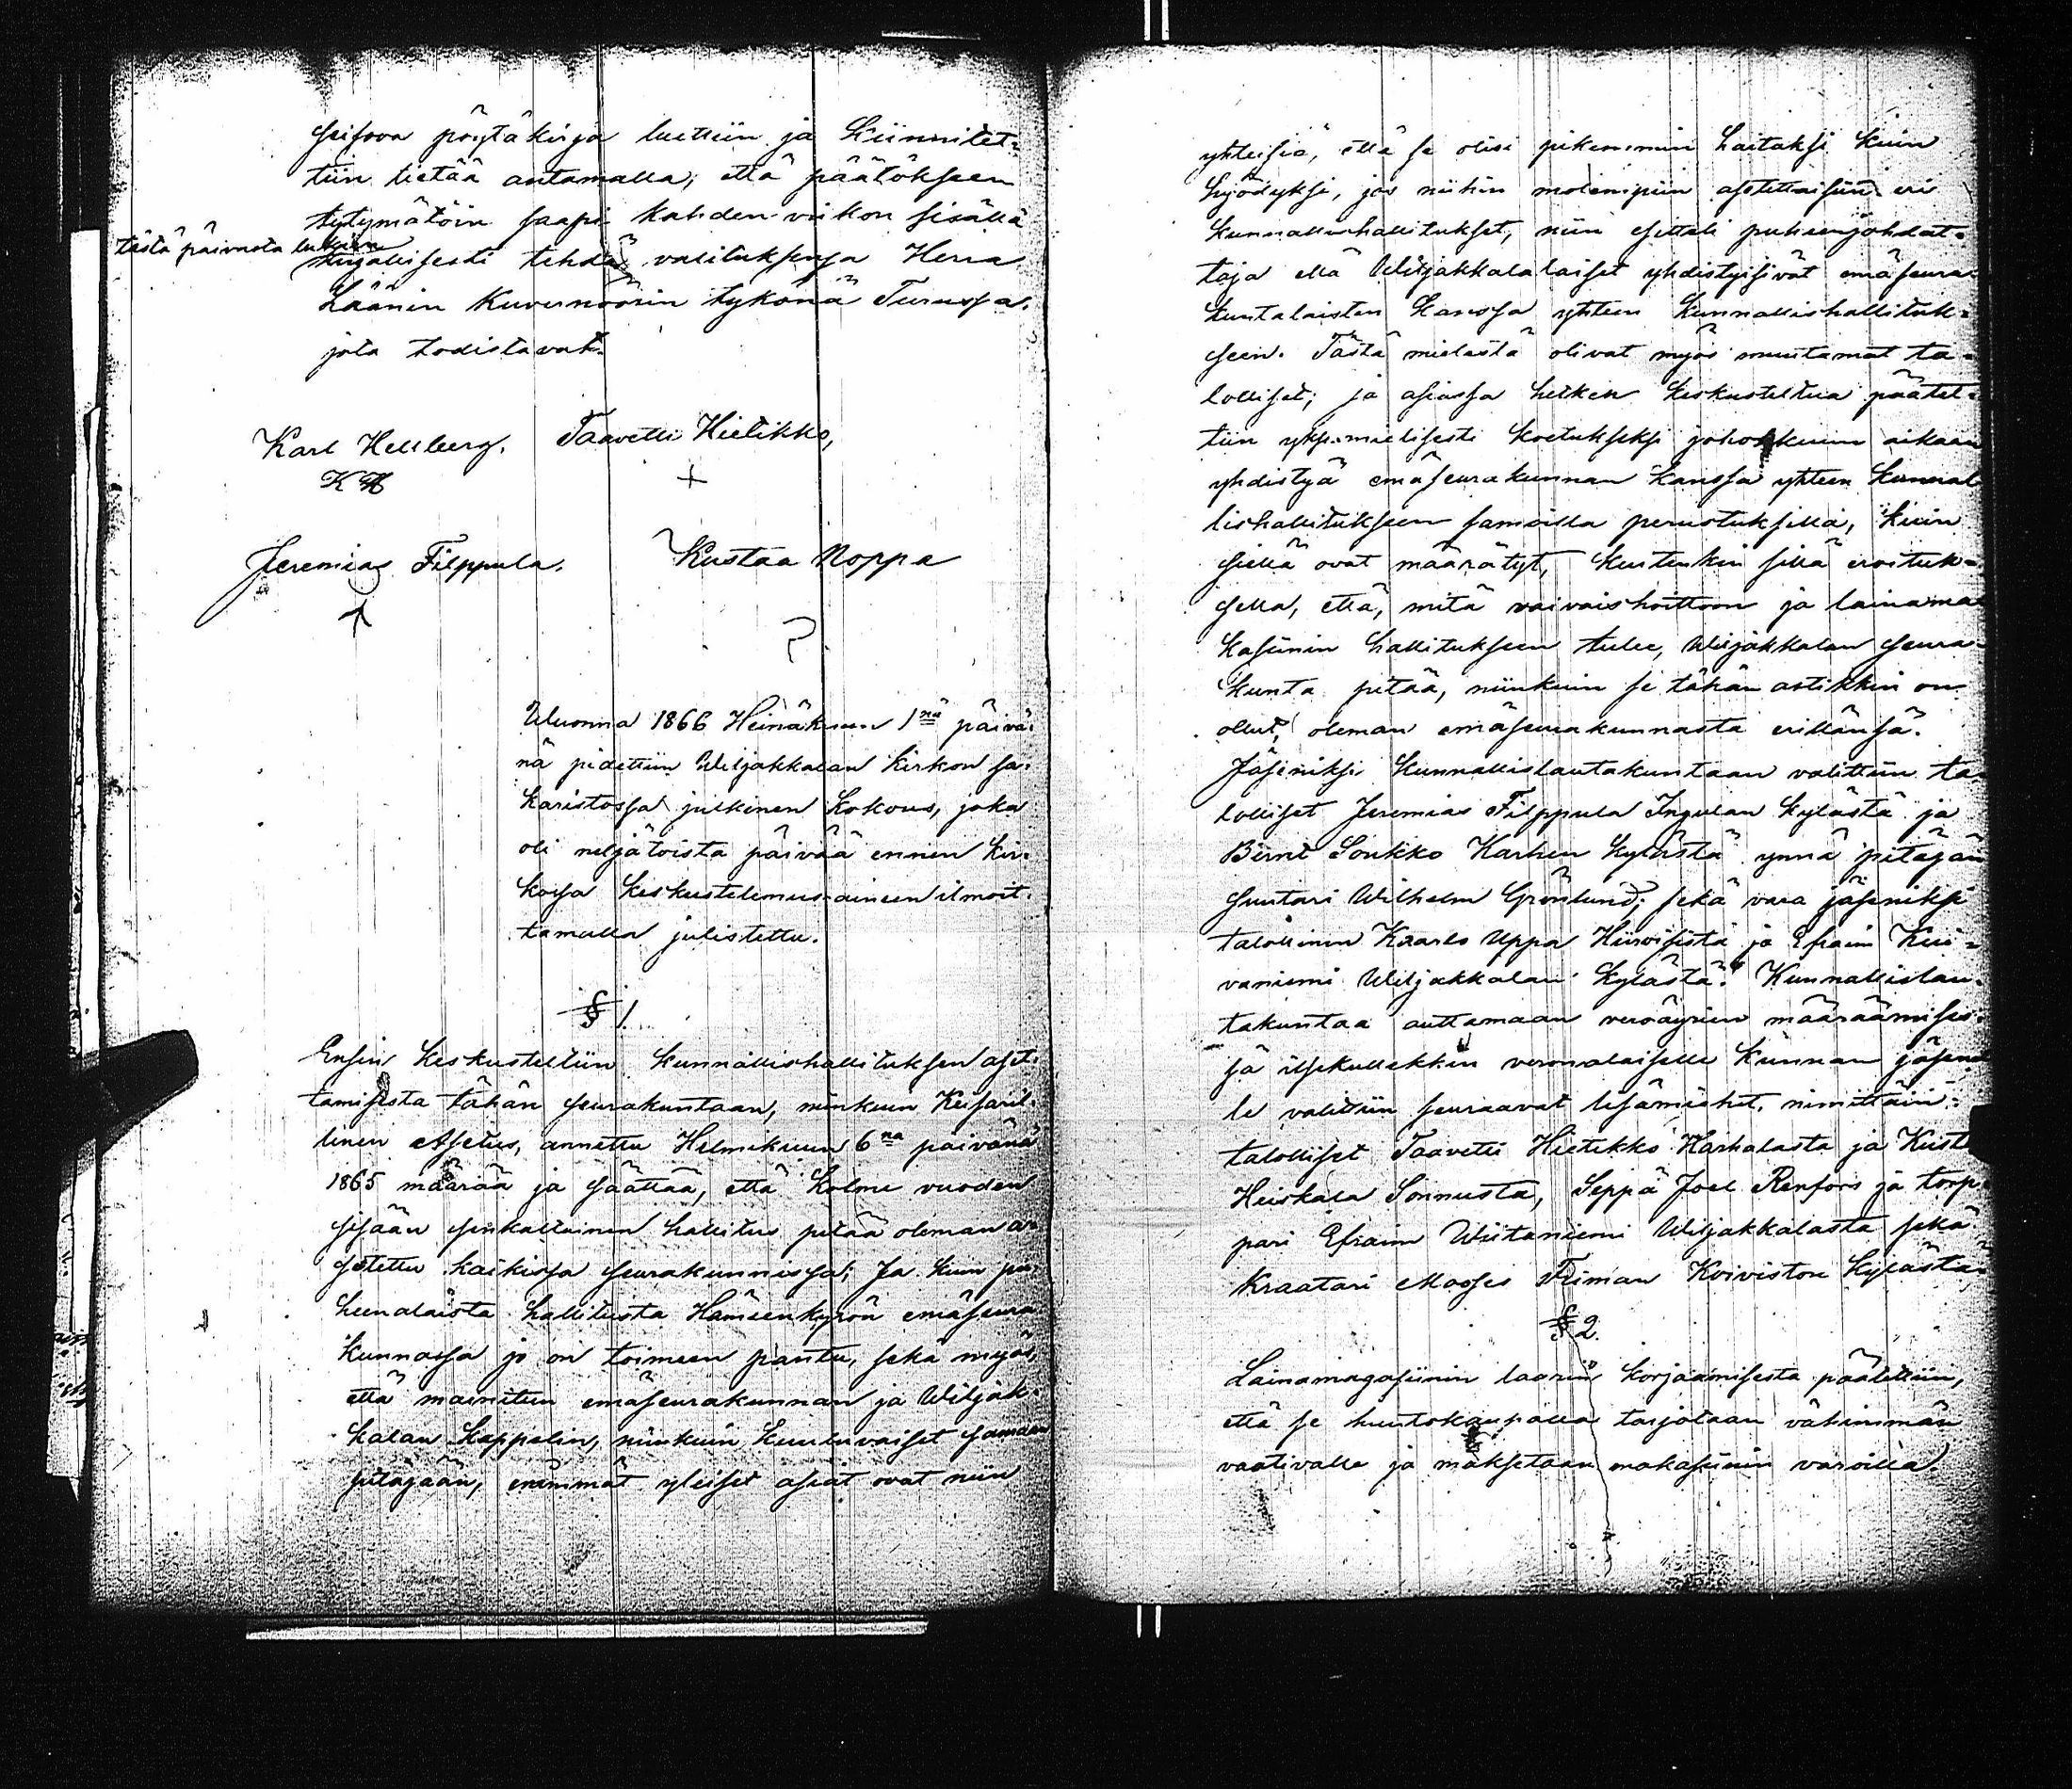 seisova pöytäkirja luettiin ja kiinnitet=
tiin tietää antamalla, että päätökseen
tytymätöin saapi kahden viikon sisällä
tästä päivästä lukien
kirjallisesti tehdä valituksensa Herra
Läänin Kuvernöörin tykönä Turussa.
jota todistavat.
Karl Hellberg. Taavetti Hietikko,
KH +
Jeremias Filppula. Kustaa Noppa
Wuonna 1866 Heinäkuun 1nä päivä-
nä pidettiin Wiljakkalan kirkon sa-
karistossa julkinen kokous, joka
oli neljätoista päivää ennen kir-
kossa keskustelemus-aineen ilmoit-
tamalla julistettu.
§ 1.
Ensin keskusteltiin kunnallishallituksen aset-
tamisesta tähän seurakuntaan, niinkuin Keisaril-
linen Asetus, annettu Helmikuun 6na päivänä
1865 määrää ja säättää, että kolme vuoden
sisään senkaltainen hallitus pitää oleman a-
setettu kaikissa seurakunnissa; Ja kuin pu-
heenalaista hallitusta Hämeenkyrön emäseura
kunnassa jo on toimeen pantu, sekä myös,
että mainitun emäseurakunnan ja Wiljak-
kalan kappelin, niinkuin kuuluvaiset samaan
pitäjään, enimmät yleiset asiat ovat niin
yhteisiä, että se olisi pikemmin haitaksi kuin
hyödyksi, jos niihin molempiin asetettaisiin eri
kunnallishallitukset, niin esitteli puheenjohdat-
taja että Wiljakkalalaiset yhdistyisivät emäseura-
kuntalaisten kanssa yhteen kunnallishallituk-
seen. Tästä mielestä olivat myös muutamat ta-
lolliset; ja asiassa hetken keskusteltua päätet-
tiin yksimielisesti koetukseksi johonkuun aikaan
yhdistyä emäseurakunnan kanssa yhteen kunnal
lishallitukseen samoilla perustuksilla, kuin
siellä ovat määrätyt, kuitenkin sillä eroituk-
sella, että, mitä vaivaishoittoon ja lainama
kasiinin hallitukseen tulee, Wiljakkalan seura-
kunta pitää, niinkuin se tähän astikkin on
ollut, oleman emäseurakunnasta erillänsä.
Jäseniksi kunnallislautakuntaan valittiin ta-
lolliset Jeremias Filppula Ingulan kylästä ja
Bernt Soukko Karhen kylästä ynnä pitäjän
suutari Wilhelm Grönlund; sekä vara jäseniksi
talollinen Kaarlo Uppa Hiiroisista ja Efraim Kui-
vaniemi Wiljakkalan kylästä. Kunnallislau-
takuntaa auttamaan veroäyrien määräämises-
sä itsekullekkin veronalaiselle kunnan jäsene
le valittiin seuraavat lisämiehet, nimittäin:
talolliset Taavetti Hietikko Harhalasta ja Kust
Heiskala Sonnusta, Seppä Joel Renfors ja torp
pari Efraim Wiitaniemi Wiljakkalasta sekä
kraatari Moses Friman Koiviston kylästä
§ 2.
Lainamagasiinin laarin korjaamisesta päätettiin,
että se huutokaupalla tarjotaan vähimmän
vaativalle ja maksetaan makasiinin varoilla.